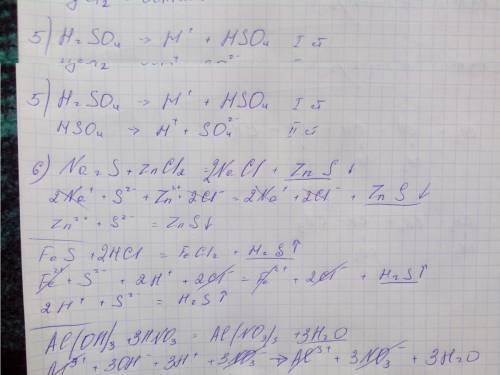 5) H₂SO₄ → H⁺ + HSO₄ I й
5) H₂SO₄ → H⁺ + HSO₄ I й
HSO₄ → H⁺ + SO₄²⁻ II й
6) Na₂S + ZnCl₂ = 2NaCl + ZnS↓
2Na⁺ + S²⁻ + Zn²⁺ + 2Cl⁻ = 2Na⁺ + 2Cl⁻ + ZnS↓
Zn²⁺ + S²⁻ = ZnS↓
FeS + 2HCl = FeCl₂ + H₂S↑
Fe²⁺ + S²⁻ + 2H⁺ + 2Cl⁻ = Fe²⁺ + 2Cl⁻ + H₂S↑
2H⁺ + S²⁻ = H₂S↑
Al(OH)₃ + 3HNO₃ = Al(NO₃)₃ + 3H₂O
Al³⁺ + 3OH⁻ + 3H⁺ + 3NO₃⁻ → Al³⁺ + 3NO₃⁻ + 3H₂O